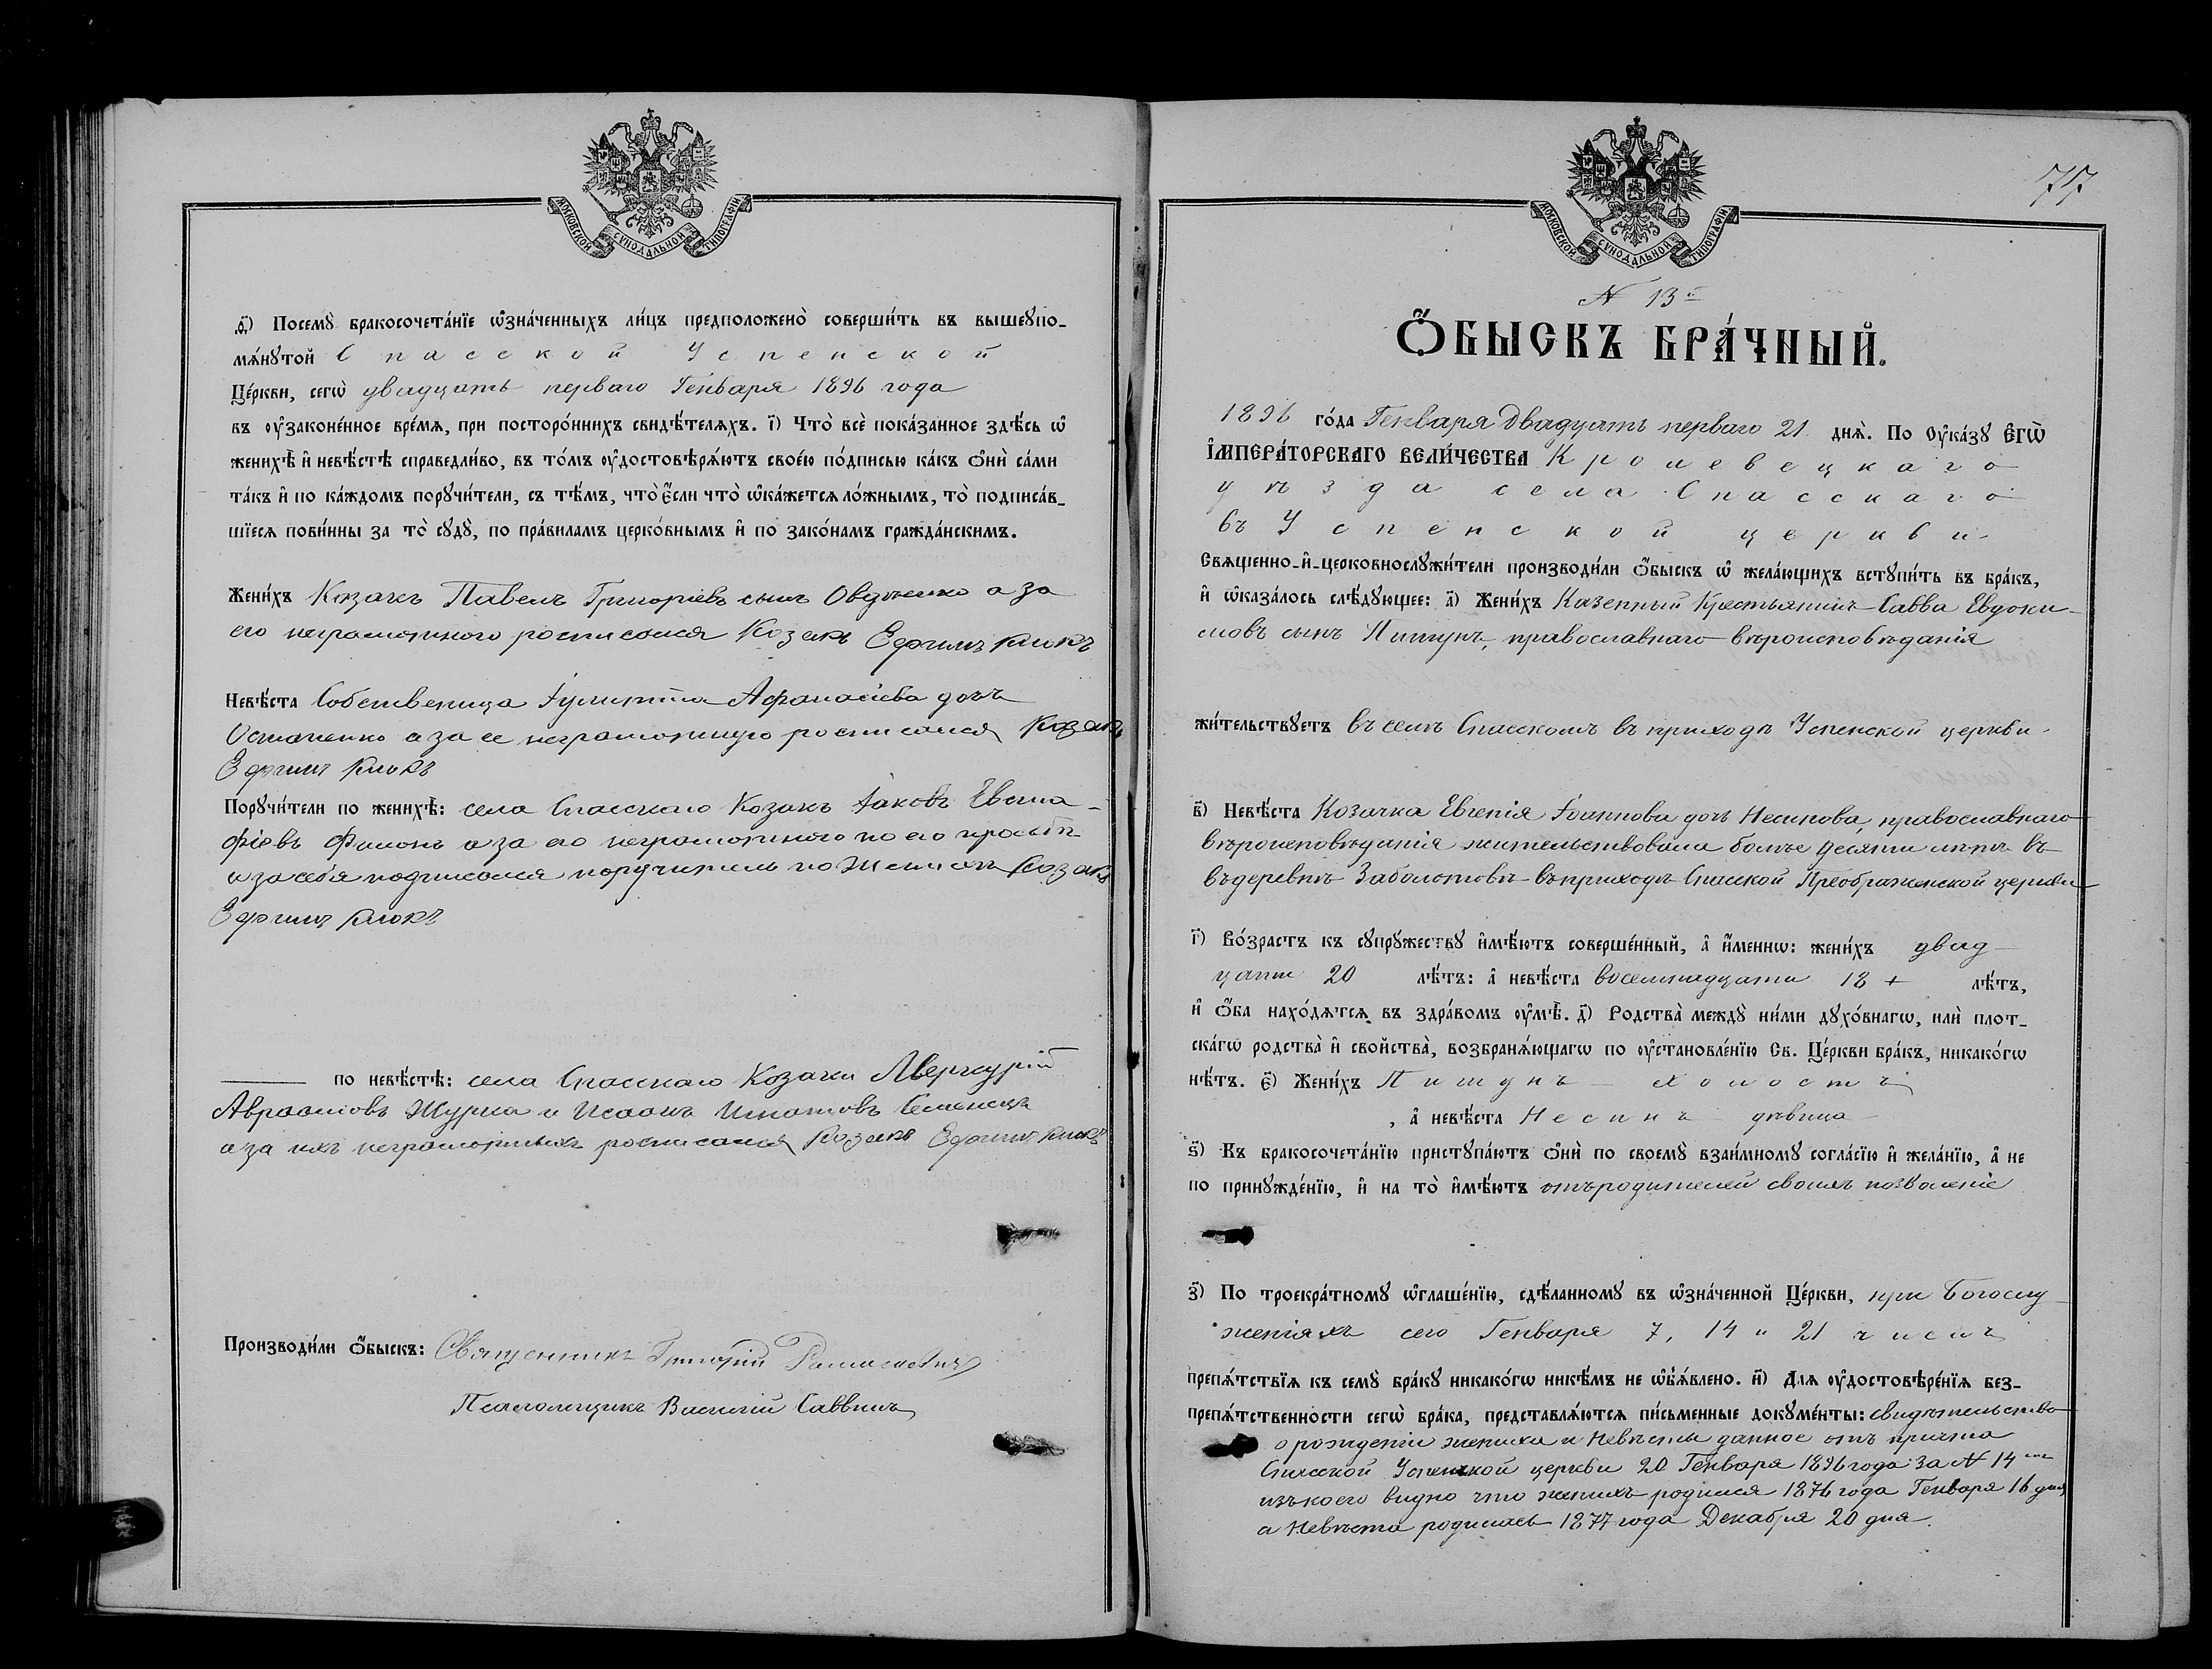 МОСКОВСКОЙ СѴНОДАЛЬНОЙ ТИПОГРАФІИ
ѳ҃) Посемꙋ̀ бракосочета́нїе ѡ҆зна́ченныхъ ли́цъ предположено̀ соверши́ть въ вышеꙋпо-
мѧ́нꙋтой Спасской Успенской
Це́ркви, сегѡ̀ двадцать перваго Генваря 1896 года
въ ᲂу҆законе́нное вре́мѧ, при посторо́ннихъ свидѣ́телѧхъ. і҃) Что̀ всѐ пока́занное здѣ́сь ѡ҆
женихѣ̀ и҆ невѣ́стѣ справедли́во, въ то́мъ ᲂу҆достовѣрѧ́ютъ свое́ю по́дписью ка́къ ѻ҆нѝ са́ми
та́къ и҆ по ка́ждомъ порꙋчи́тели, съ тѣ́мъ, что̀ є҆́сли что̀ ѡ҆ка́жетсѧ ло́жнымъ, то̀ подписа́в-
шїесѧ пови́нны за то̀ сꙋдꙋ̀, по пра́виламъ церко́внымъ и҆ по зако́намъ гражда́нскимъ.
Жени́хъ Козакъ Павелъ Григоріевъ сынъ Овдіенко а за
его неграмотного росписался Козакъ Ефимъ Клюкъ
Невѣ́ста Собственица Іулиттa Афанасіева дочь
Остапенко а за ее неграмотную росписался Козакъ
Ефимъ Клюкъ
Порꙋчи́тели по женихѣ̀: села Спасскаго Козакъ Іаковъ Евста-
фіевъ Филонъ а за его неграмотного по его просьбѣ
и за себя подписался поручитель по Женихѣ Козакъ
Ефимъ Клюкъ
по невѣ́стѣ: села Спасскаго Козаки Меркурій
Авраамовъ Журба и Исаакъ Игнатовъ
а за ихъ неграмотныхъ росписался Козакъ Ефимъ Клюкъ
Производи́ли ѻ҆́быскъ: Священникъ Григорій Ромаскевичъ
Псаломщикъ Василій Саввинъ
77
МОСКОВСКОЙ СѴНОДАЛЬНОЙ ТИПОГРАФІИ
N 13й
Ѻ҆́БЫСКЪ БРА́ЧНЫЙ.
1896 го́да Генваря Двадцать перваго 21 днѧ̀. По ᲂу҆ка́зꙋ Є҆гѡ̀
І҆МПЕРА́ТОРСКАГО ВЕЛИ́ЧЕСТВА Кролевецкаго
уѣзда села Спасскаго
въ Успенской церкви
Свѧщенно-и҆-церковнослꙋжи́тели производи́ли ѻ҆́быскъ ѡ҆ жела́ющихъ встꙋпи́ть въ бра́къ,
и҆ ѡ҆каза́лось слѣ́дꙋющее: а҃) Жени́хъ Казенный Крестьянинъ Савва Евдоки-
мовъ сынъ Пишунъ, православнаго вѣроисповѣданія
жи́тельствꙋетъ въ селѣ Спасскомъ въ приходѣ Успенской церкви
в҃) Невѣ́ста Козачка Евгенія Іоаннова дочь Несинова, православнаго
вѣроисповѣданія жительствовала болѣе десяти лѣтъ въ
въ деревнѣ Заболотовѣ въ приходѣ Спасской Преображенской церкви
г҃) Во́зрастъ къ сꙋпрꙋ́жествꙋ и҆мѣ́ютъ соверше́нный, а҆ и҆́меннѡ: жени́хъ двад
цати 20 лѣ́тъ: а҆ невѣ́ста восемнадцати 18 + лѣ́тъ,
и҆ ѻ҆́ба нахо́дѧтсѧ въ здра́вомъ ᲂу҆мѣ̀. д҃) Родства̀ междꙋ̀ ни́ми дꙋхо́внагѡ, илѝ плот-
ска́гѡ родства̀ и҆ свойства̀, возбранѧ́ющагѡ по ᲂу҆становле́нїю Св. Це́ркви бра́къ, никако́гѡ
нѣ́тъ. є҃) Жени́хъ Пишунъ холостъ
, а҆ невѣ́ста Несинъ дѣвица
ѕ҃) Къ бракосочета́нїю пристꙋпа́ютъ ѻ҆нѝ по своемꙋ̀ взаи́мномꙋ согла́сїю и҆ жела́нїю, а҆ не
по принꙋжде́нїю, и҆ на то̀ и҆мѣ́ютъ отъ родителей своихъ позволеніе
з҃) По троекра́тномꙋ ѡ҆глаше́нїю, сдѣ́ланномꙋ въ ѡ҆зна́ченной Це́ркви, при Богослу
женіяхъ сего Генваря 7, 14 и 21 чиселъ
препѧ́тствїѧ къ семꙋ̀ бра́кꙋ никако́гѡ никѣ́мъ не ѡ҆б̾ѧ́влено. и҃) Длѧ ᲂу҆достовѣре́нїѧ без-
препѧ́тственности сегѡ̀ бра́ка, представлѧ́ютсѧ пи́сьменные докꙋме́нты: свидѣтельство
о рожденіи жениха и Невѣсты данное отъ причта
Спасской Успенской церкви 20 Генваря 1896 года за N 14
изъ коего видно что женихъ родился 1876 года Генваря 16 дня
а Невѣста родилась 1877 года Декабря 20 дня.